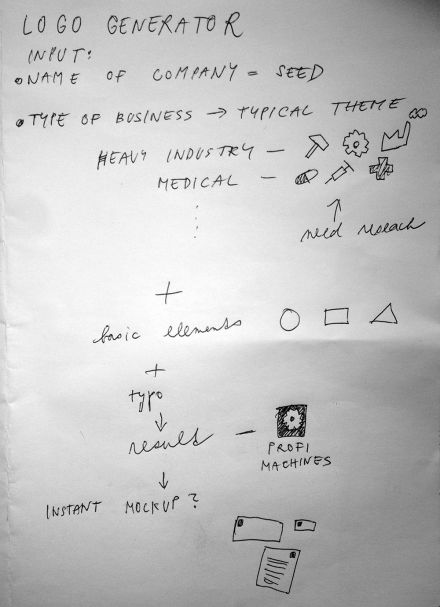 LOGO GENERATOR
INPUT:
NAME OF COMPANY = SEED
TYPE OF BUSINESS → TYPICAL THEME
HEAVY INDUSTRY —
MEDICAL —
need reseach
+
basic elements
+
typo
result —
PROFI
MACHINES
INSTANT MOCKUP?